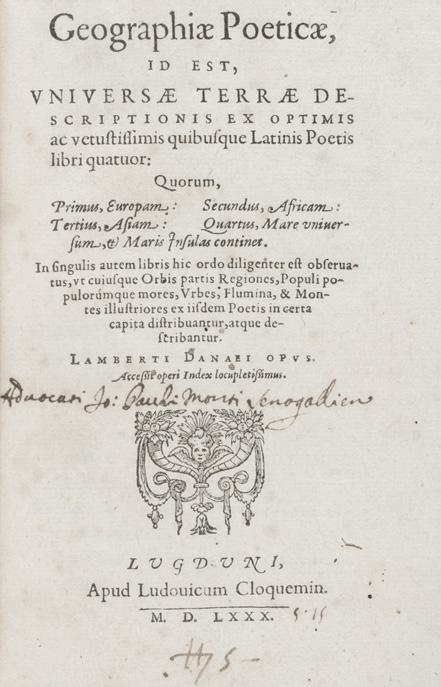 Geographiæ Poeticæ,
ID EST,
VNIVERSÆ TERRÆ DE-
SCRIPTIONIS EX OPTIMIS
ac vetustissimis quibusque Latinis Poetis
libri quatuor:
Quorum,
Primus, Europam: Secundus, Africam:
Tertius, Asiam: Quartus, Mare vniuer-
sum, & Maris Insulas continet.
In singulis autem libris hic ordo diligenter est obserua-
tus, vt cuiusque Orbis partis Regiones, Populi po-
pulorúmque mores, Vrbes, Flumina, & Mon-
tes illustriores ex iisdem Poetis in certa
capita distribuantur, atque de-
scribantur.
LAMBERTI DANAEI OPVS.
Accessit operi Index locupletissimus.
Aduocati Jo: Pauli Monti Senogallien
LVGDVNI,
Apud Ludouicum Cloquemin.
M. D. LXXX.